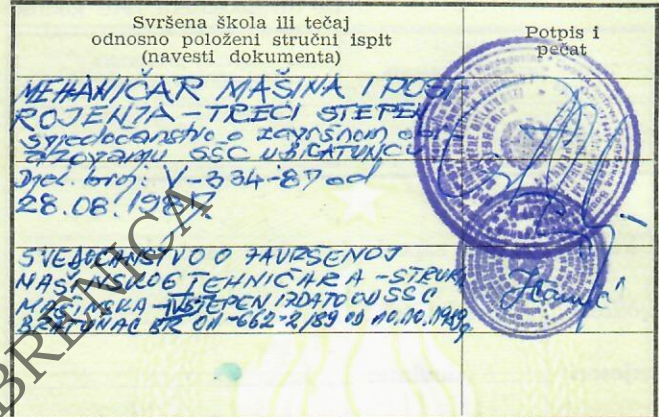 Svršena škola ili tečaj
odnosno položeni stručni ispit
(navesti dokumenta)
Potpis i
pečat
MEHANIČAR MAŠINA I POST
ROJENJA - TREĆI STEPEN
svjedočanstvo o završnom ob
razovanju SSC U BRATUNCU
Djel. broj: V-334-87 od
28.08.1987.
SVEDOČANSTVO O ZAVRŠENOJ
MAŠINSKOG TEHNIČARA - STRUKA
MAŠINSKA - IV STEPEN IZDATO OD SSC
BRATUNAC BR 01-662-2/89 OD 10.10.1989g
BRENICA